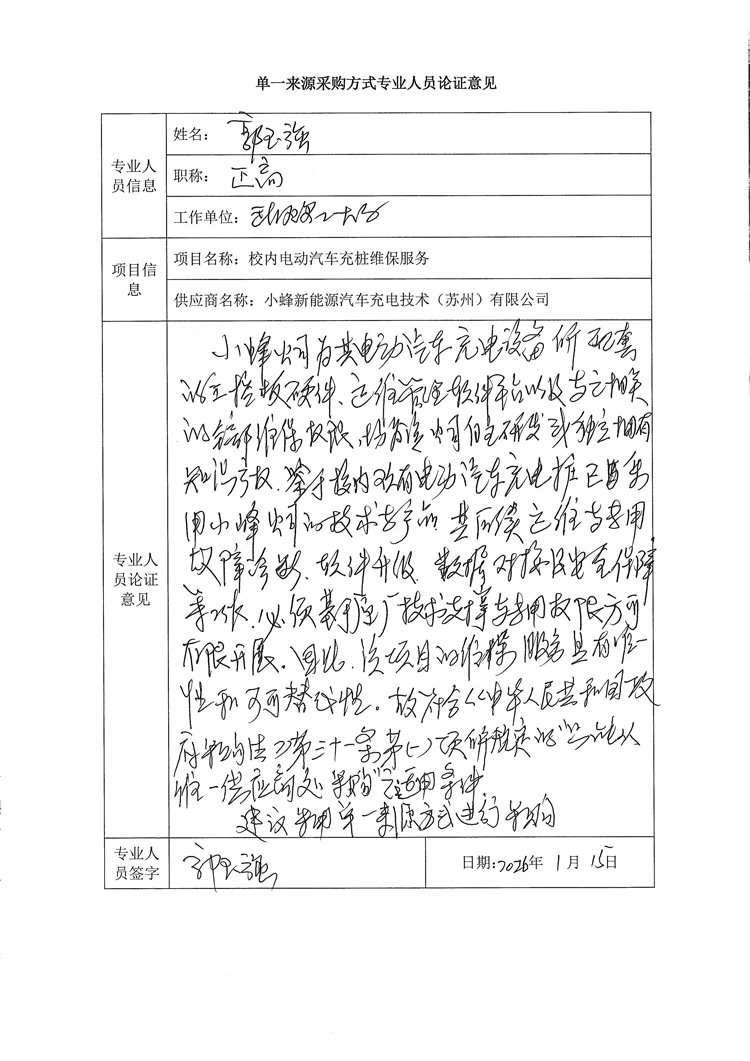 单一来源采购方式专业人员论证意见
专业人员信息
姓名：郭玉强
职称：正高
工作单位：
项目信息
项目名称：校内电动汽车充桩维保服务
供应商名称：小蜂新能源汽车充电技术（苏州）有限公司
专业人员论证意见
小蜂公司为其电动汽车充电设备所配套
的主控板硬件、运维管理软件平台以及与之相关
的全部维保权限，均为该公司自主研发或独立拥有
知识产权。鉴于校内现有电动汽车充电桩已采
用小蜂公司的技术与产品，其后续运维与专用
故障诊断、软件升级、数据对接及安全保障
等工作，必须基于原厂技术支撑与专用权限方可
有限开展。因此，该项目的维保服务具有唯一
性和不可替代性。故符合《中华人民共和国政
府采购法》第三十一条第（一）项所规定的“只能从
唯一供应商处采购”之适用条件
建议采用单一来源方式进行采购
专业人员签字
郭玉强
日期：2026年1月15日